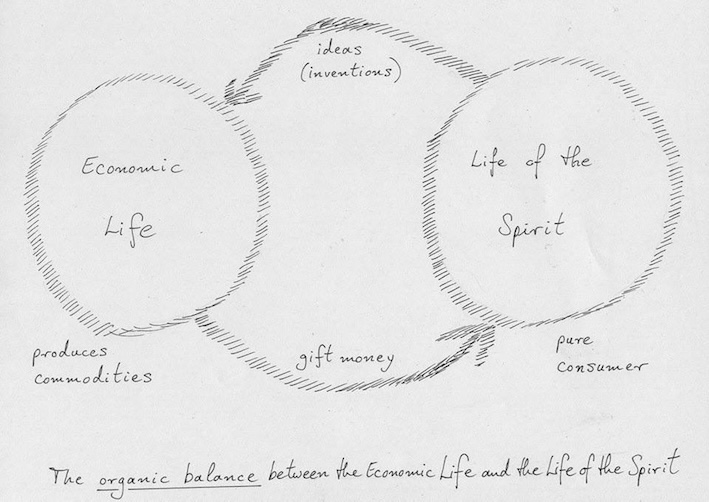 ideas
(inventions)
Economic
Life
Life of the
Spirit
produces
commodities
gift money
pure
consumer
The organic balance between the Economic Life and the Life of the Spirit